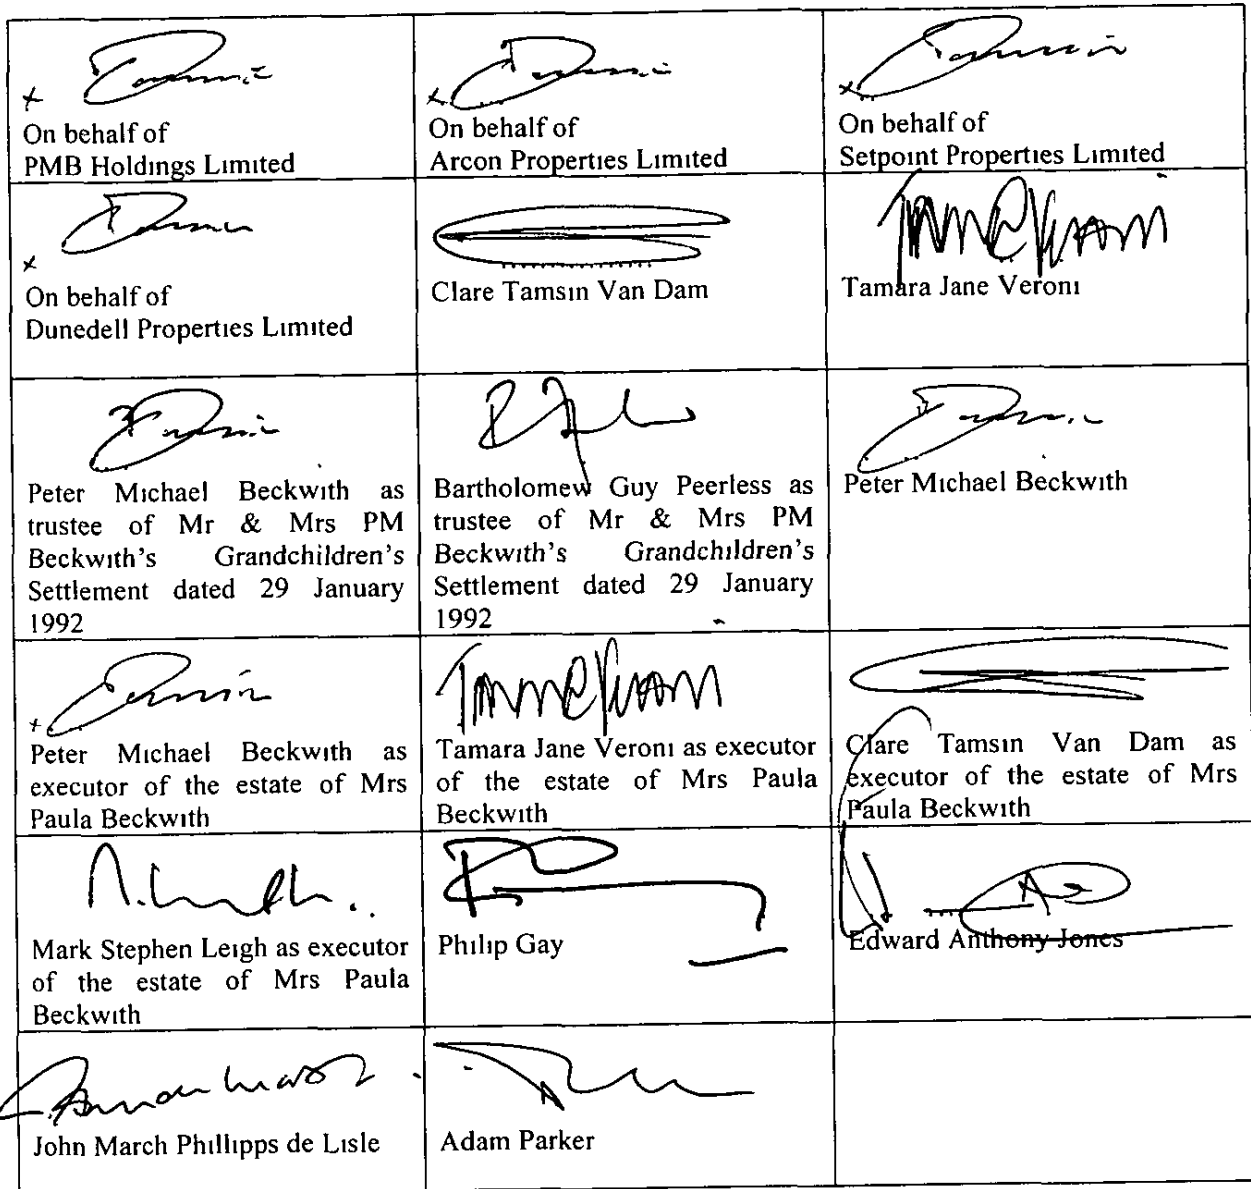 On behalf of
PMB Holdings Limited
On behalf of
Arcon Properties Limited
On behalf of
Setpoint Properties Limited
On behalf of
Dunedell Properties Limited
Clare Tamsin Van Dam
Tamara Jane Veroni
Peter Michael Beckwith as
trustee of Mr & Mrs PM
Beckwith's Grandchildren's
Settlement dated 29 January
1992
Bartholomew Guy Peerless as
trustee of Mr & Mrs PM
Beckwith's Grandchildren's
Settlement dated 29 January
1992
Peter Michael Beckwith
Peter Michael Beckwith as
executor of the estate of Mrs
Paula Beckwith
Tamara Jane Veroni as executor
of the estate of Mrs Paula
Beckwith
Clare Tamsin Van Dam as
executor of the estate of Mrs
Paula Beckwith
Mark Stephen Leigh as executor
of the estate of Mrs Paula
Beckwith
Philip Gay
Edward Anthony Jones
John March Phillipps de Lisle
Adam Parker